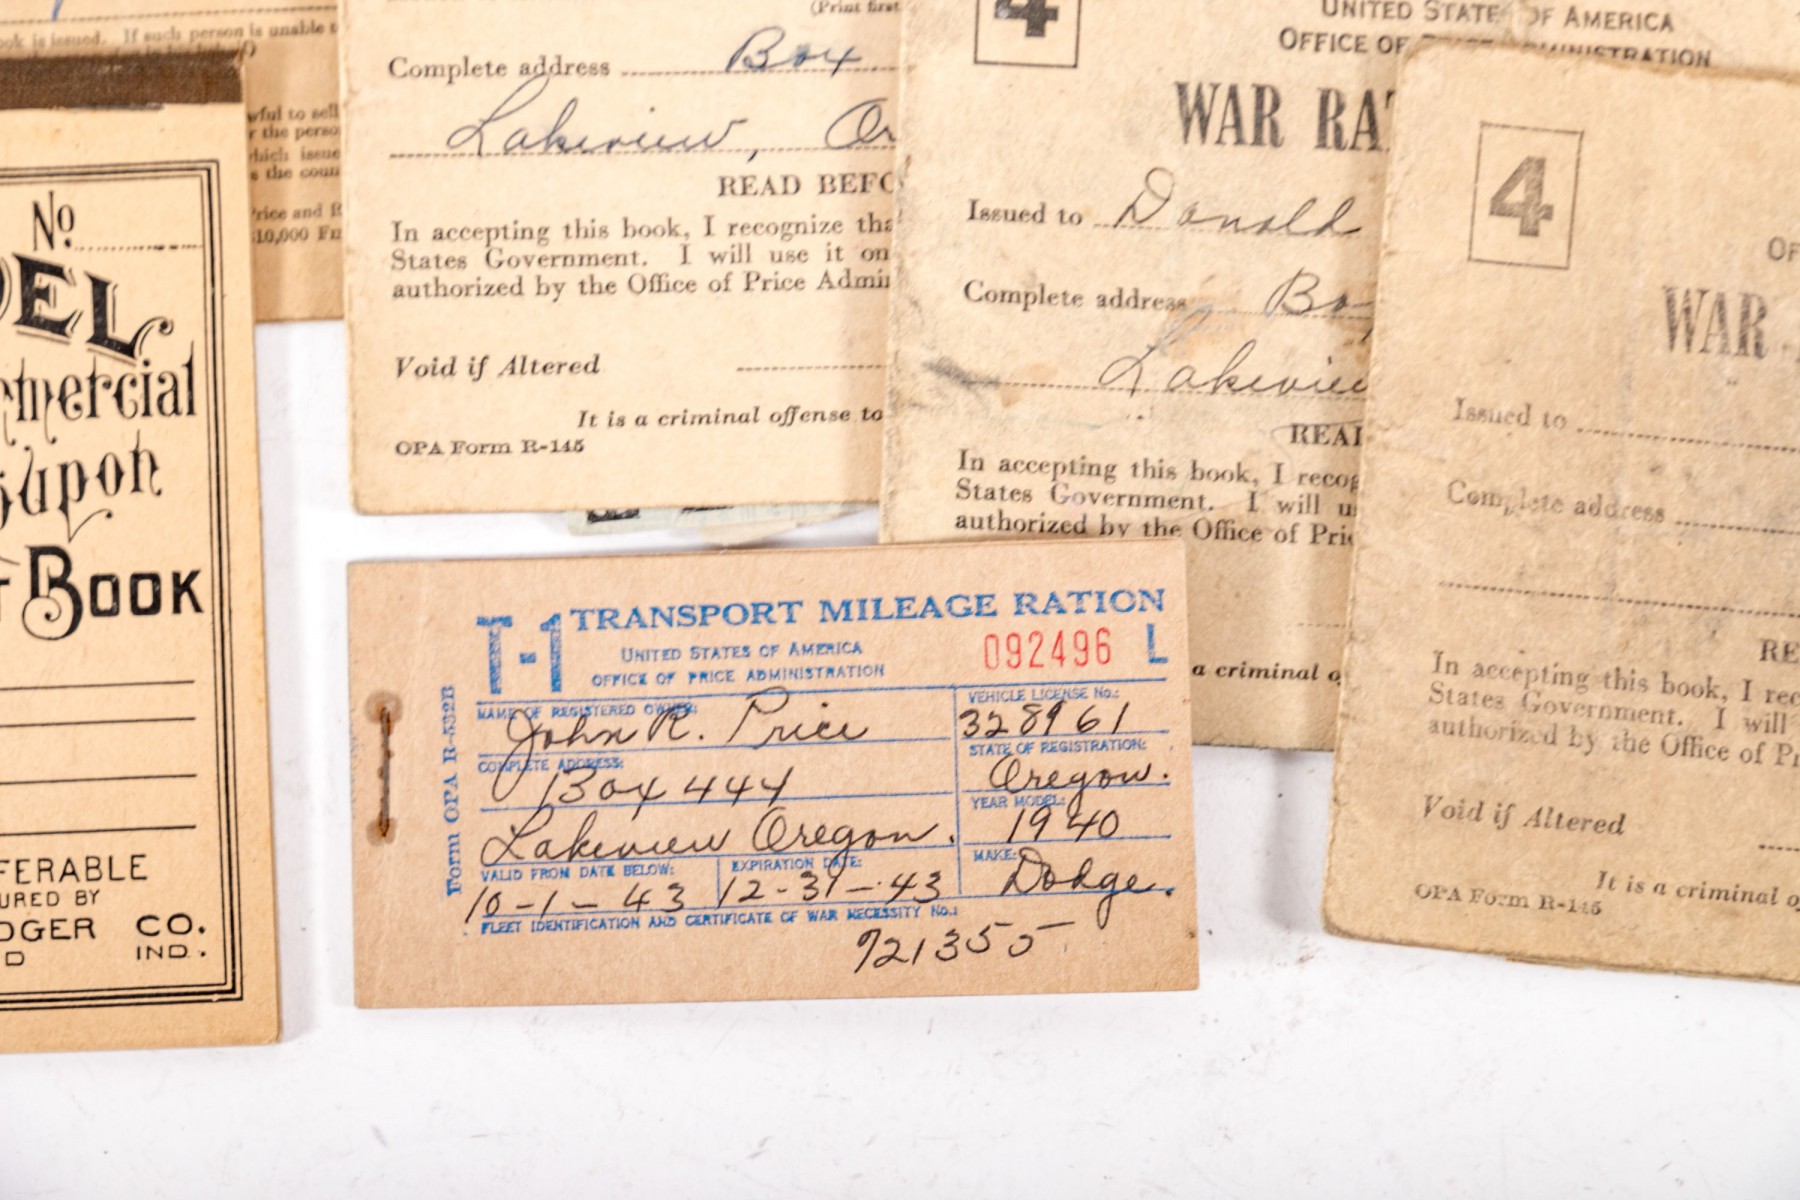 ook is issued. If such person is unable
wful to sell
r the perso
which issue
s the coun
Price and R
$10,000 Fu
No.
DEL
mmercial
oupon
Book
FERABLE
URED BY
DGER CO.
D IND.
(Print first
Complete address Box
Lakeview, Or
READ BEFO
In accepting this book, I recognize tha
States Government. I will use it on
authorized by the Office of Price Admin
Void if Altered
It is a criminal offense to
OPA Form R-145
4
UNITED STATES OF AMERICA
OFFICE OF PRICE ADMINISTRATION
WAR RAT
Issued to Donald
Complete address Bo
Lakeview
READ
In accepting this book, I recog
States Government. I will u
authorized by the Office of Pric
a criminal o
4
OF
WAR
Issued to
Complete address
RE
In accepting this book, I rec
States Government. I will
authorized by the Office of Pr
Void if Altered
It is a criminal o
OPA Form R-145
T-1 TRANSPORT MILEAGE RATION
UNITED STATES OF AMERICA
OFFICE OF PRICE ADMINISTRATION
092496 L
Form OPA R-532B
NAME OF REGISTERED OWNER:
John R. Price
COMPLETE ADDRESS:
Box 444
Lakeview Oregon.
VEHICLE LICENSE No.:
328961
STATE OF REGISTRATION:
Oregon.
YEAR MODEL:
1940
MAKE:
Dodge.
VALID FROM DATE BELOW:
10-1-43
EXPIRATION DATE:
12-31-43
FLEET IDENTIFICATION AND CERTIFICATE OF WAR NECESSITY No.:
721355